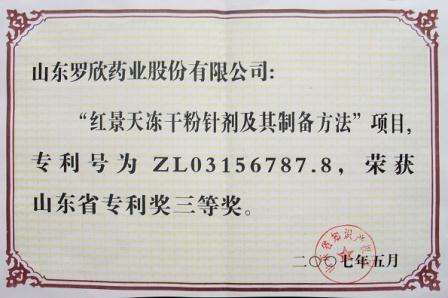 山东罗欣药业股份有限公司：
“红景天冻干粉针剂及其制备方法”项目，
专利号为 ZL03156787.8，荣获
山东省专利奖三等奖。
二〇〇七年五月